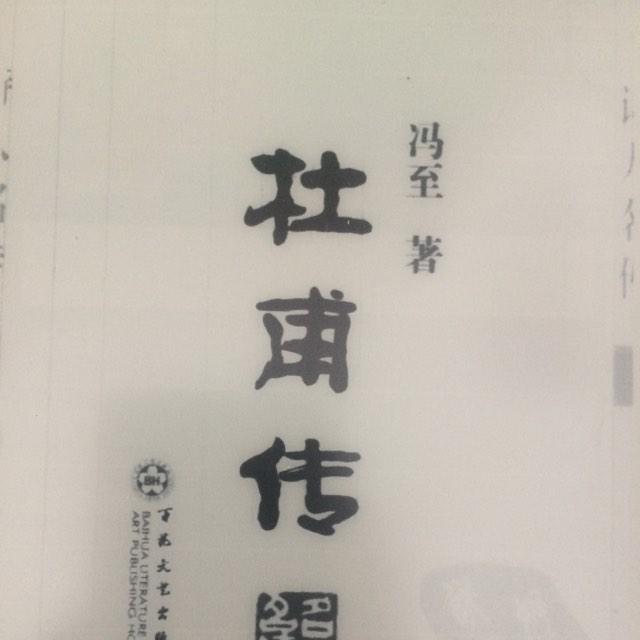 冯至 著
杜甫传
百花文艺出
BAIHUA LITERATURE
ART PUBLISHING